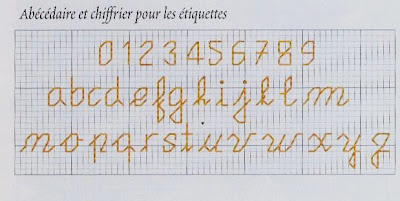 Abécédaire et chiffrier pour les étiquettes
0123456789
abcdefghijklm
nopqrstuvwxyz